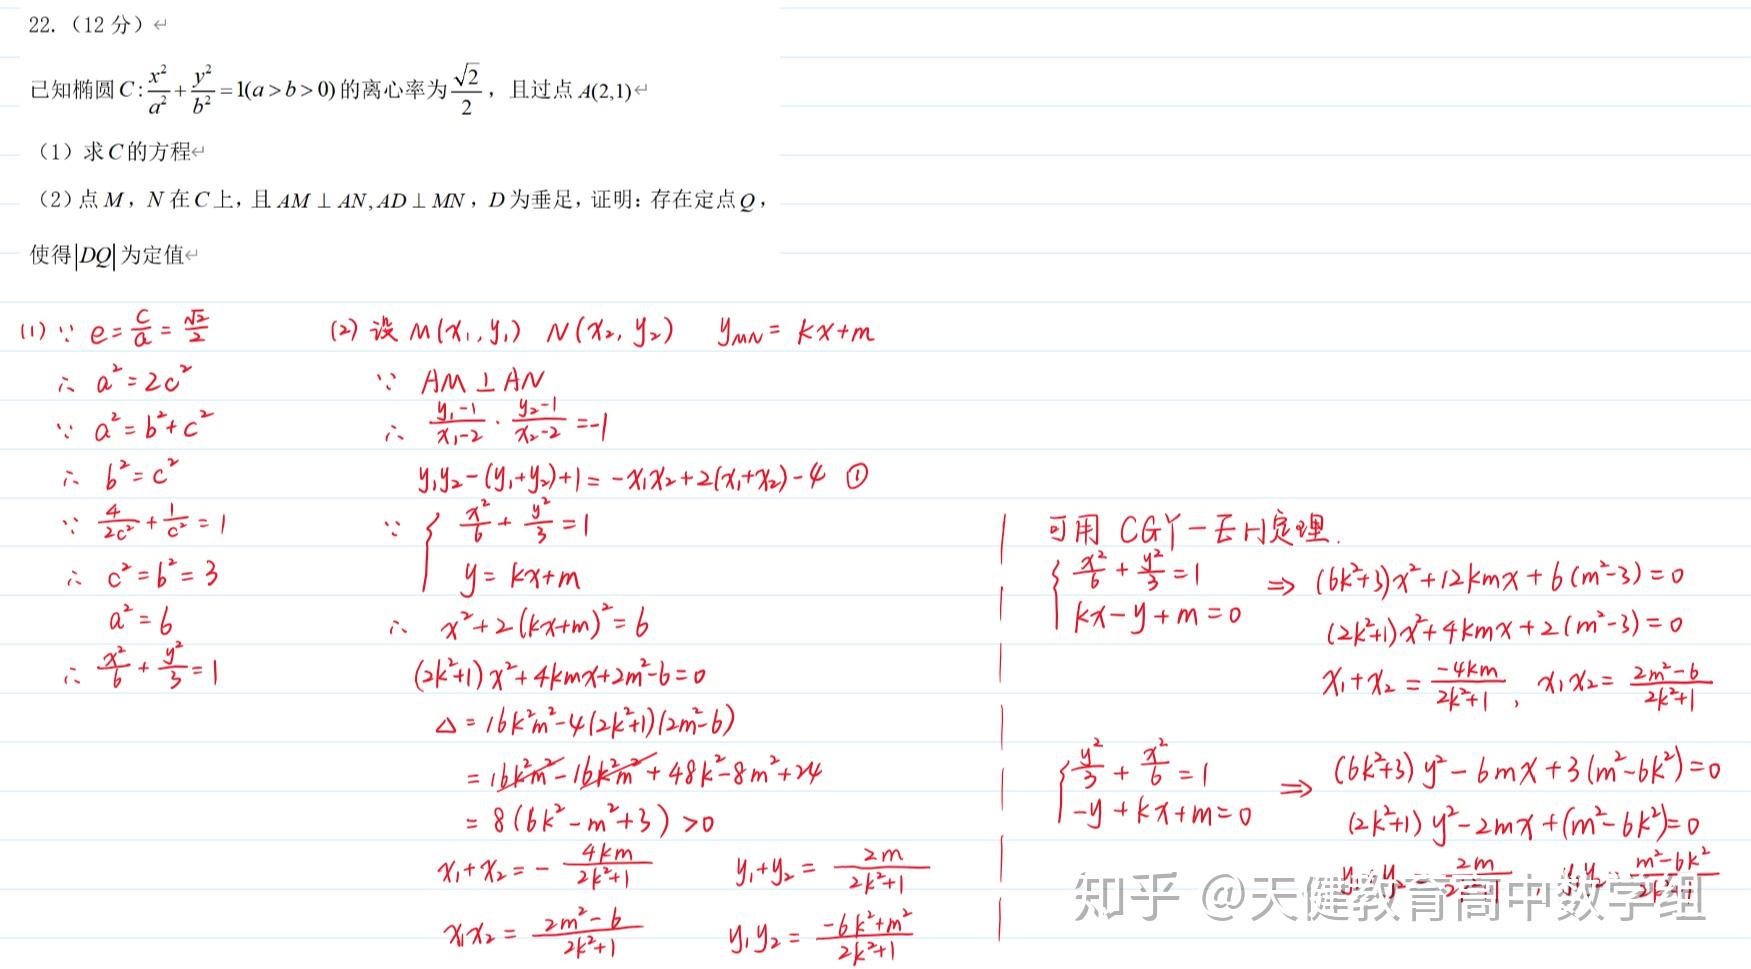 22.（12 分）
已知椭圆 C: x²/a² + y²/b² = 1(a > b > 0) 的离心率为 √2/2，且过点 A(2,1)
（1）求 C 的方程
（2）点 M，N 在 C 上，且 AM ⊥ AN, AD ⊥ MN，D 为垂足，证明：存在定点 Q，
使得|DQ|为定值
(1) ∵ e = c/a = √2/2
∴ a² = 2c²
∵ a² = b² + c²
∴ b² = c²
∵ 4/2c² + 1/c² = 1
∴ c² = b² = 3
a² = 6
∴ x²/6 + y²/3 = 1
(2) 设 M(x₁, y₁) N(x₂, y₂) y_MN = kx+m
∵ AM ⊥ AN
∴ (y₁-1)/(x₁-2) · (y₂-1)/(x₂-2) = -1
y₁y₂-(y₁+y₂)+1 = -x₁x₂+2(x₁+x₂)-4 ①
∵ { x²/6 + y²/3 = 1
y = kx+m
∴ x²+2(kx+m)² = 6
(2k²+1)x²+4kmx+2m²-6=0
Δ = 16k²m²-4(2k²+1)(2m²-6)
= 16k²m²-16k²m²+48k²-8m²+24
= 8(6k²-m²+3) >0
x₁+x₂ = - 4km/(2k²+1) y₁+y₂ = 2m/(2k²+1)
x₁x₂ = (2m²-6)/(2k²+1) y₁y₂ = (-6k²+m²)/(2k²+1)
可用 CGY-EH定理.
{ x²/6 + y²/3 = 1 ⇒ (6k²+3)x²+12kmx+6(m²-3)=0
kx-y+m=0
(2k²+1)x²+4kmx+2(m²-3)=0
x₁+x₂ = -4km/(2k²+1), x₁x₂ = (2m²-6)/(2k²+1)
{ y²/3 + x²/6 = 1 ⇒ (6k²+3)y²-6mx+3(m²-6k²)=0
-y+kx+m=0
(2k²+1)y²-2mx+(m²-6k²)=0
y₁+y₂ = 2m/(2k²+1) y₁y₂ = (m²-6k²)/(2k²+1)
知乎 @天健教育高中数学组